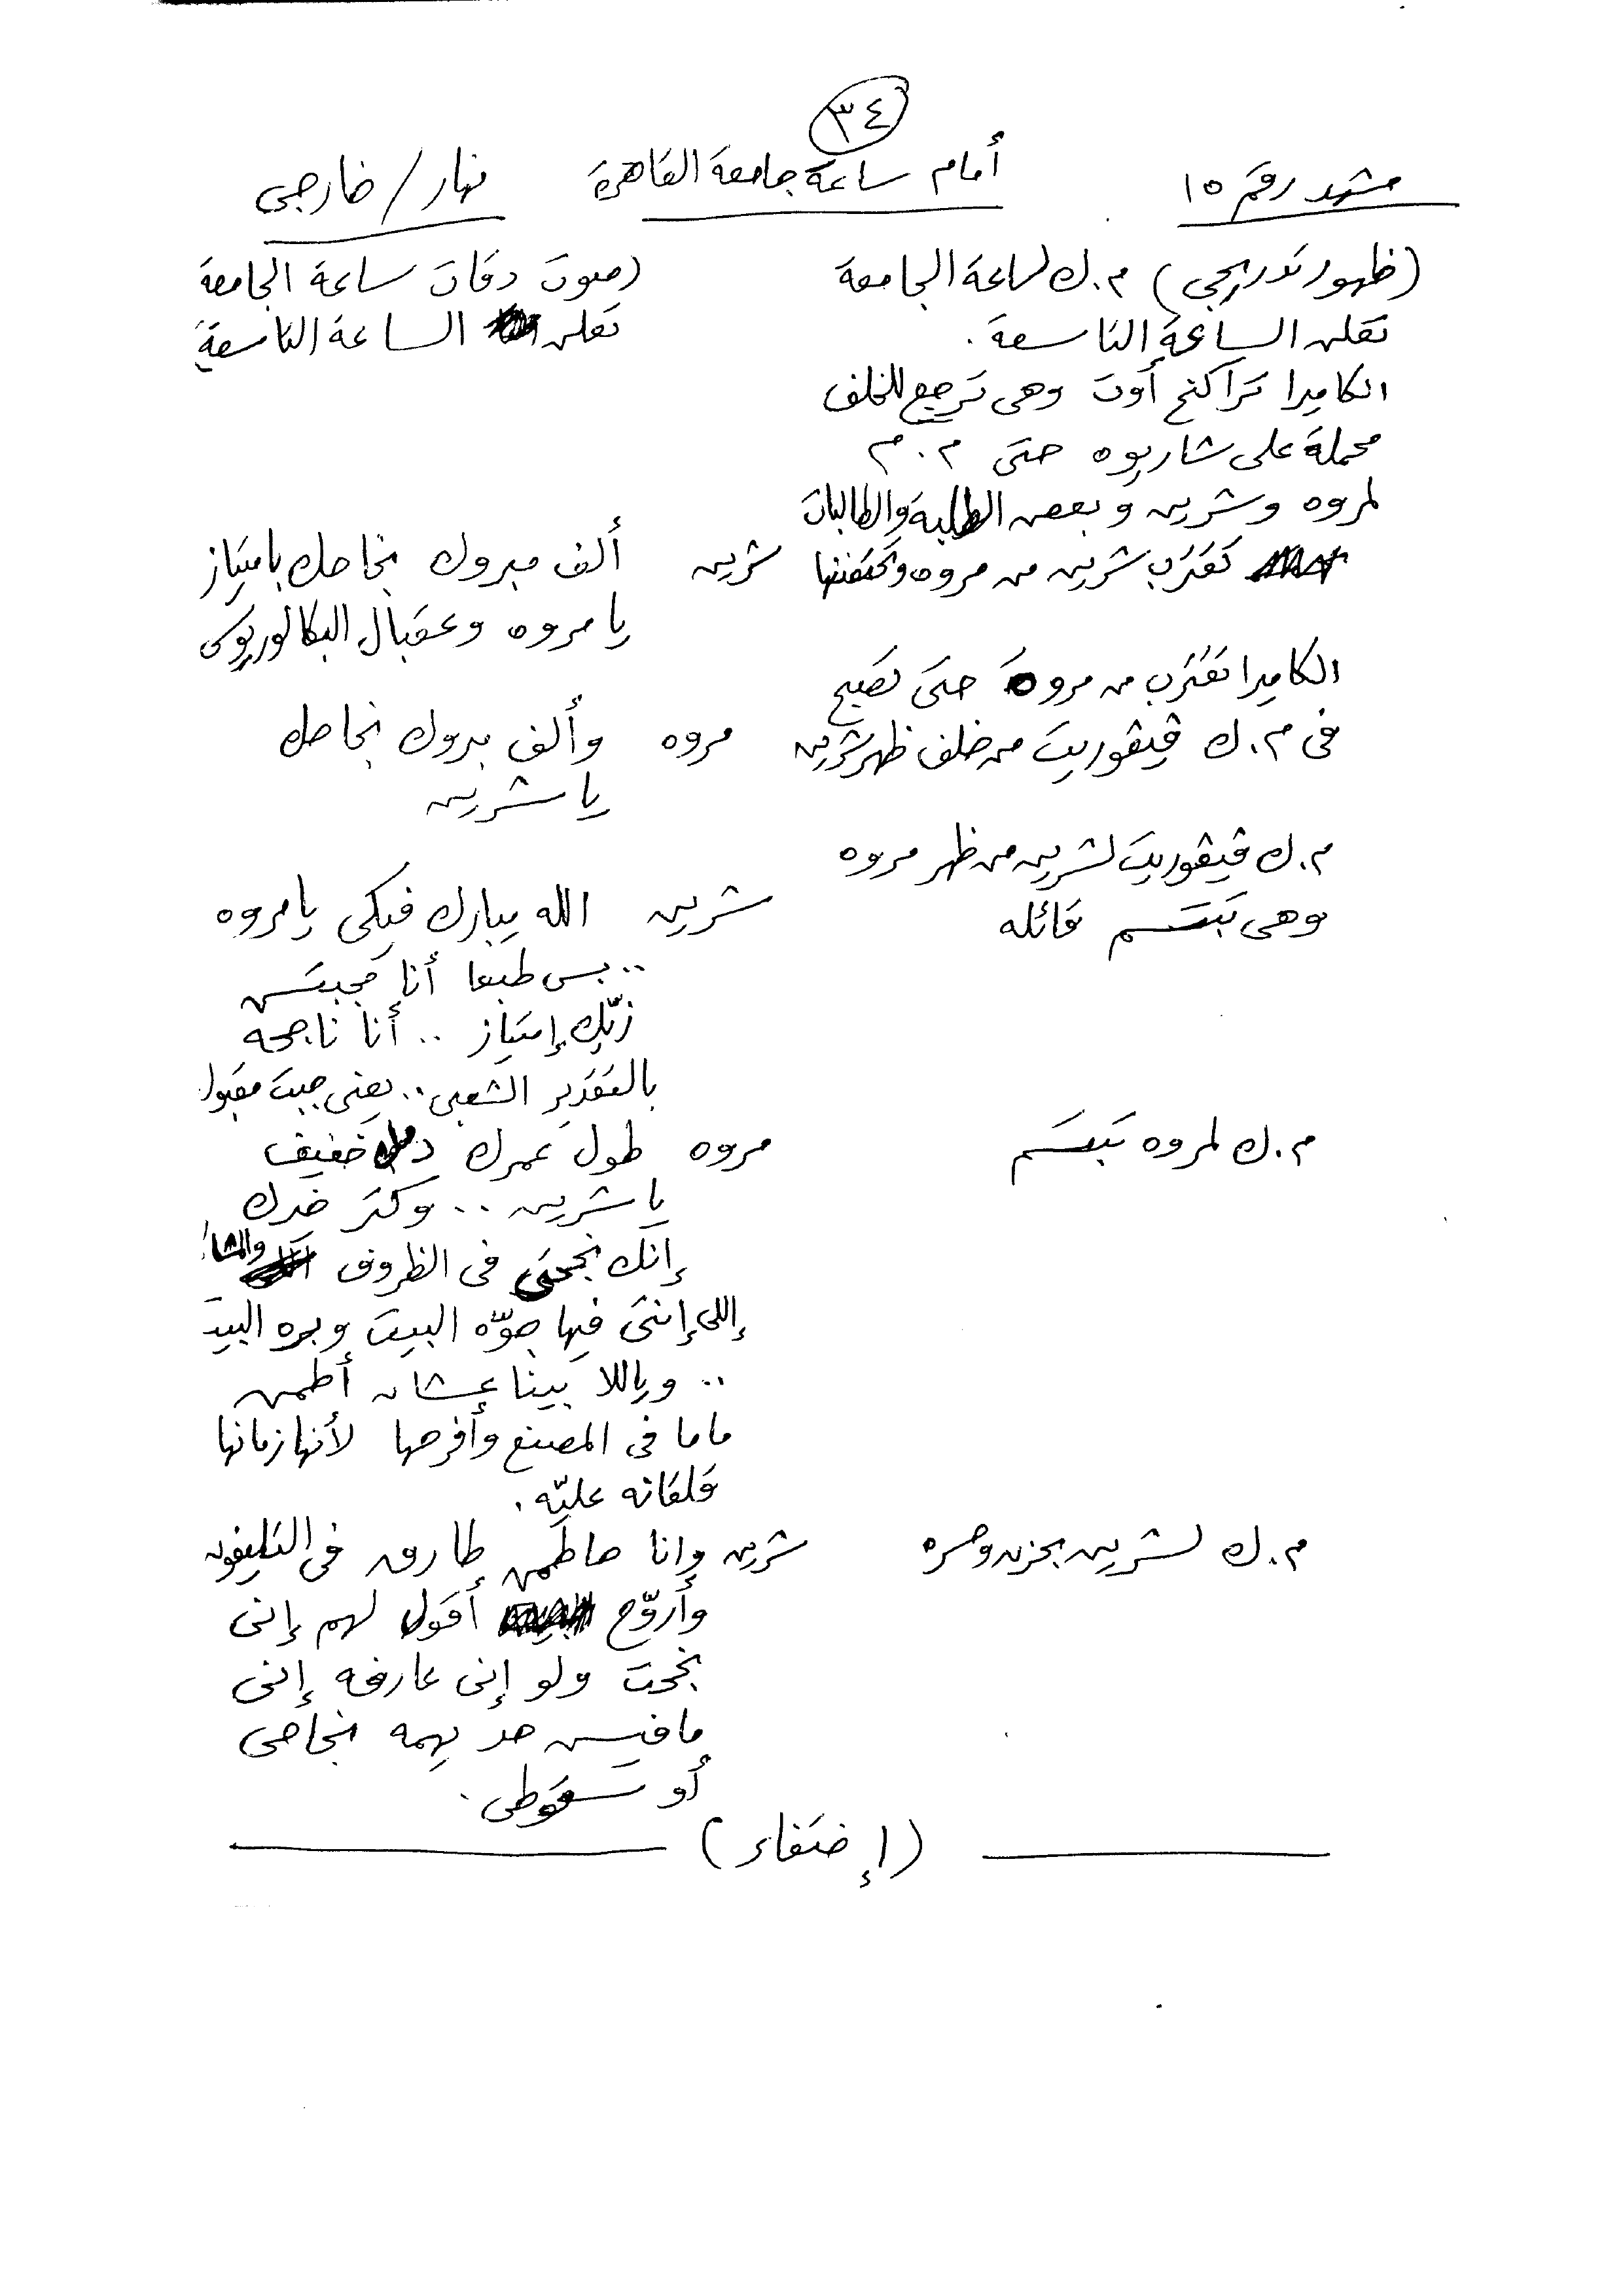 ٣٤
مشهد رقم ١٥ أمام ساعة جامعة القاهرة نهار / خارجى
(ظهور تدريجى) م.ك لساعة الجامعة
تعلن الساعة التاسعة .
(صوت دقات ساعة الجامعة
تعلن الساعة التاسعة)
الكاميرا تراكنج أوت وهى ترجع للخلف
محملة على شاريوه حتى م.م
لمروه وشرين وبعض الطلبة والطالبات
تقترب شرين من مروه وتحتضنها
شرين ألف مبروك نجاحك بامتياز
يا مروه وعقبال البكالوريوس
الكاميرا تقترب من مروة حتى تصبح
فى م.ك ڤيڤوريت من خلف ظهر شرين
مروه وألف مبروك نجاحك
يا شرين
م.ك ڤيڤوريت لشرين من ظهر مروه
وهى تبتسم قائله
شرين الله يبارك فيكى يا مروه
.. بس طبعا أنا مجبتش
زيّك إمتياز .. أنا ناجحه
بالتقدير الشعبى .. يعنى جبت مقبول
م.ك لمروه تبتسم
مروه طول عمرك دمك خفيف
يا شرين .. وكتر خيرك
إنك نجحتى فى الظروف
إللى إنتى فيها جوّه البيت وبره البيت
.. وياللا بينا عشان أطمن
ماما فى المصنع وأفرحها لأنها زمانها
قلقانه عليّه .
م.ك لشرين بحزن وحسره
شرين وانا حاطمن طارق فى التليفون
وأروّح أقول لهم إنى
نجحت ولو إنى عارفه إنى
مافيش حد يهمه نجاحى
أو سقوطى .
(إختفاء)